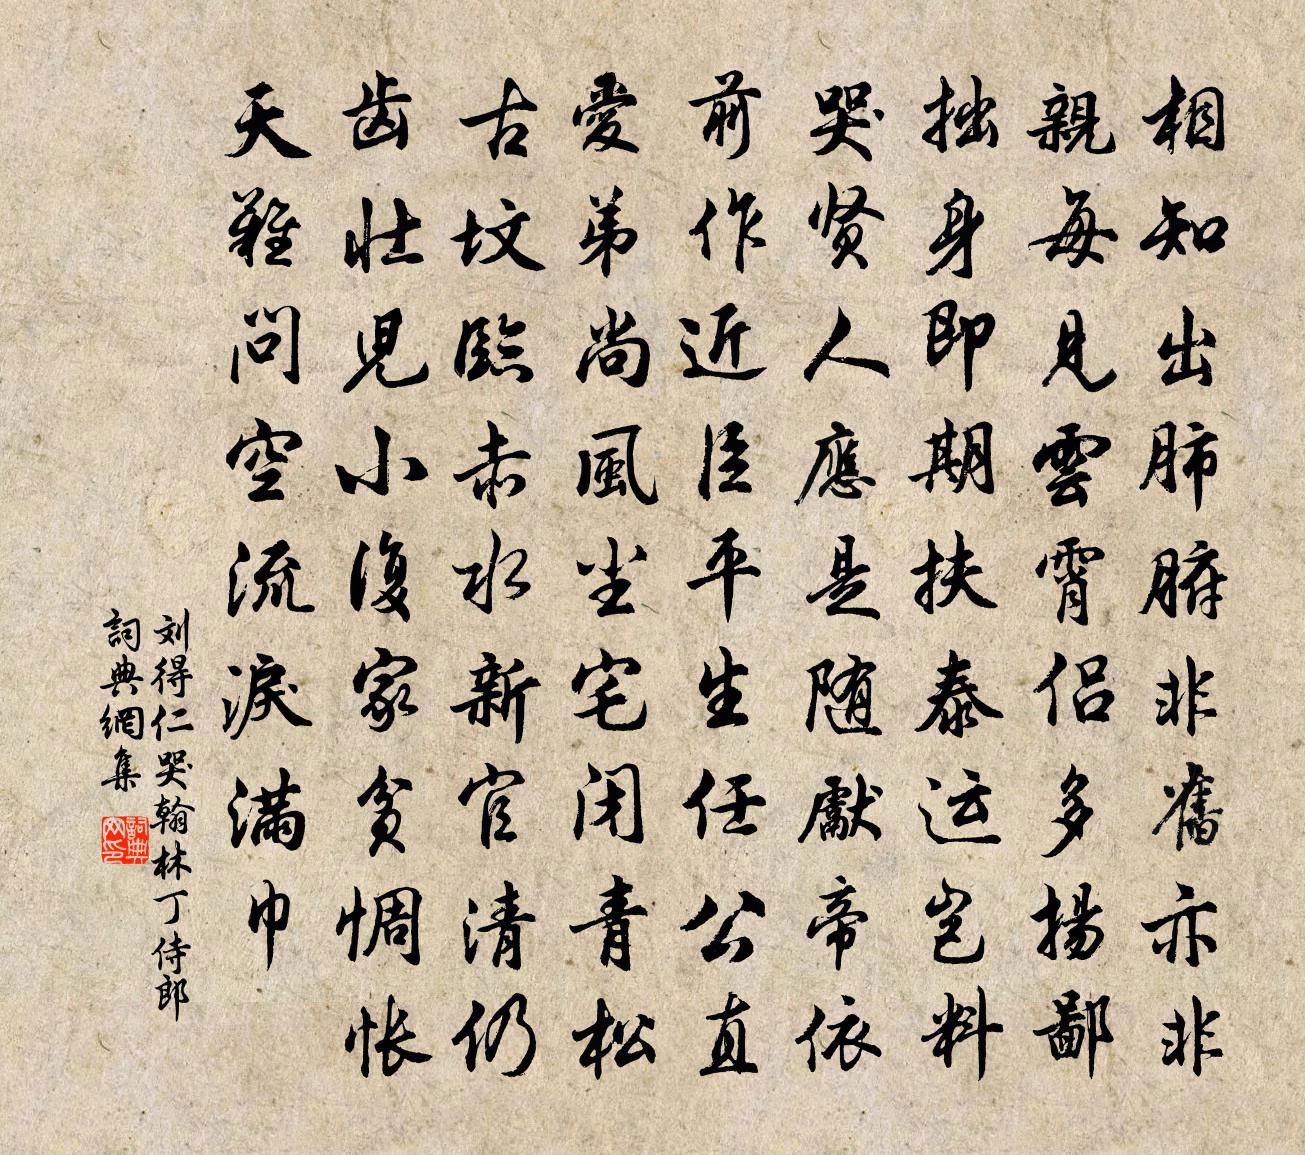 相知出肺腑非舊亦非
親每見雲霄侣多揚鄙
拙身即期扶泰运岂料
哭贤人應是随獻帝依
前作近臣平生任公直
愛弟尚風尘宅闭青松
古坟臨赤水新官清仍
齿壮児小復家贫惆怅
天難问空流淚满巾
刘得仁哭翰林丁侍郎
詞典網集
詞典网印